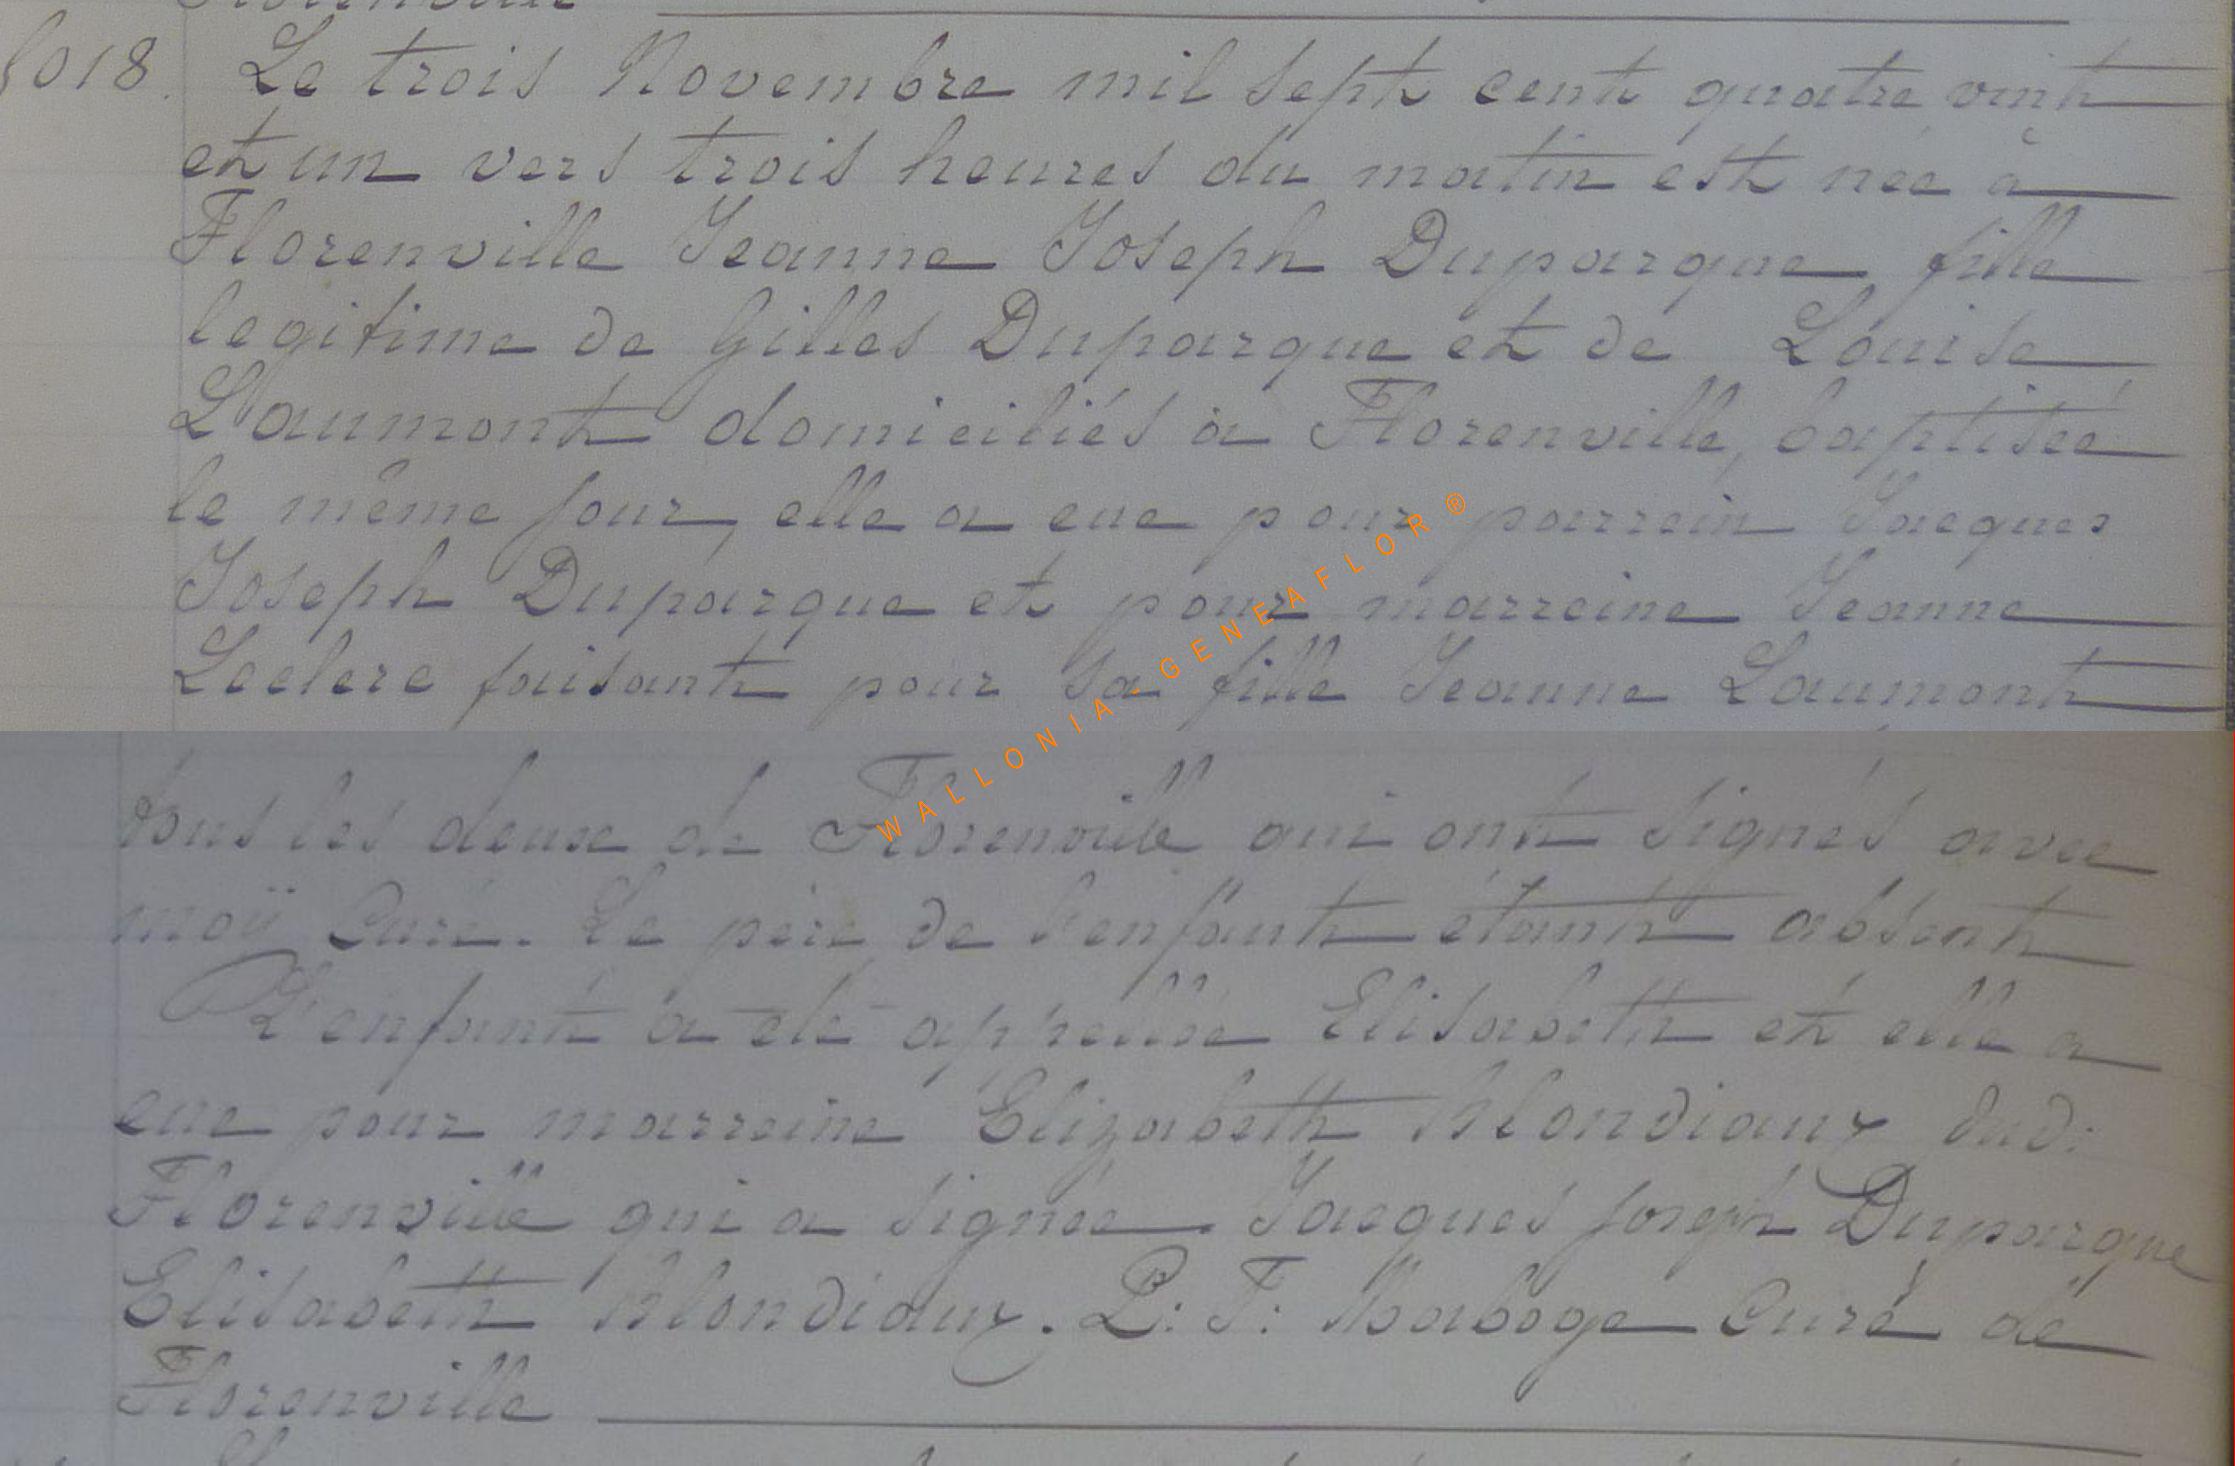 fo 18. Le trois Novembre mil sept cent quatre vint
et un vers trois heures du matin est née à
Florenville Jeanne Joseph Duparque fille
legitime de Gilles Duparque et de Louise
Laumont domiciliés à Florenville, baptisée
le même jour, elle a eue pour parrein Jacques
Joseph Duparque et pour marreine Jeanne
Leclerc faisant pour sa fille Jeanne Laumont
WALLONIA GENEAFLOR ®
tous les deux de Florenville qui ont signés avec
moÿ Curé. Le père de l'enfant étant absent
L'enfant a été appellée Elisabeth et elle a
eue pour marreine Elizabeth Blondiaux dud:
Florenville qui a signée. Jacques joseph Duparque
Elisabeth Blondiaux. P: F: Maboge Curé de
Florenville